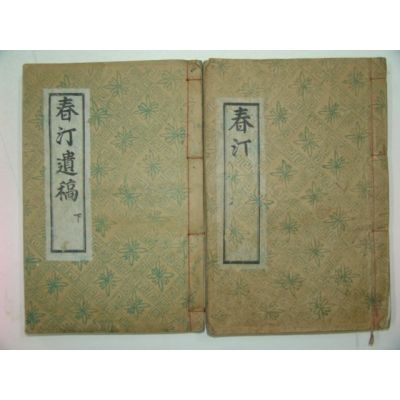 春汀遺稿
下
春汀